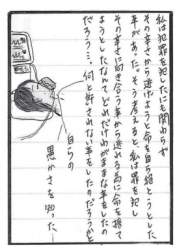 私は犯罪を犯したにも関わらず
その辛さから逃げようと命を自ら絶とうとした
事があった。そう考えると、私は罪を犯し
その辛さに向き合う事から逃れる為に命を捨て
ようとしたなんてどれだけわがままな事をしたので
だろう…、何と許されない事をしたのだろうかと
自らの
愚かさを知った